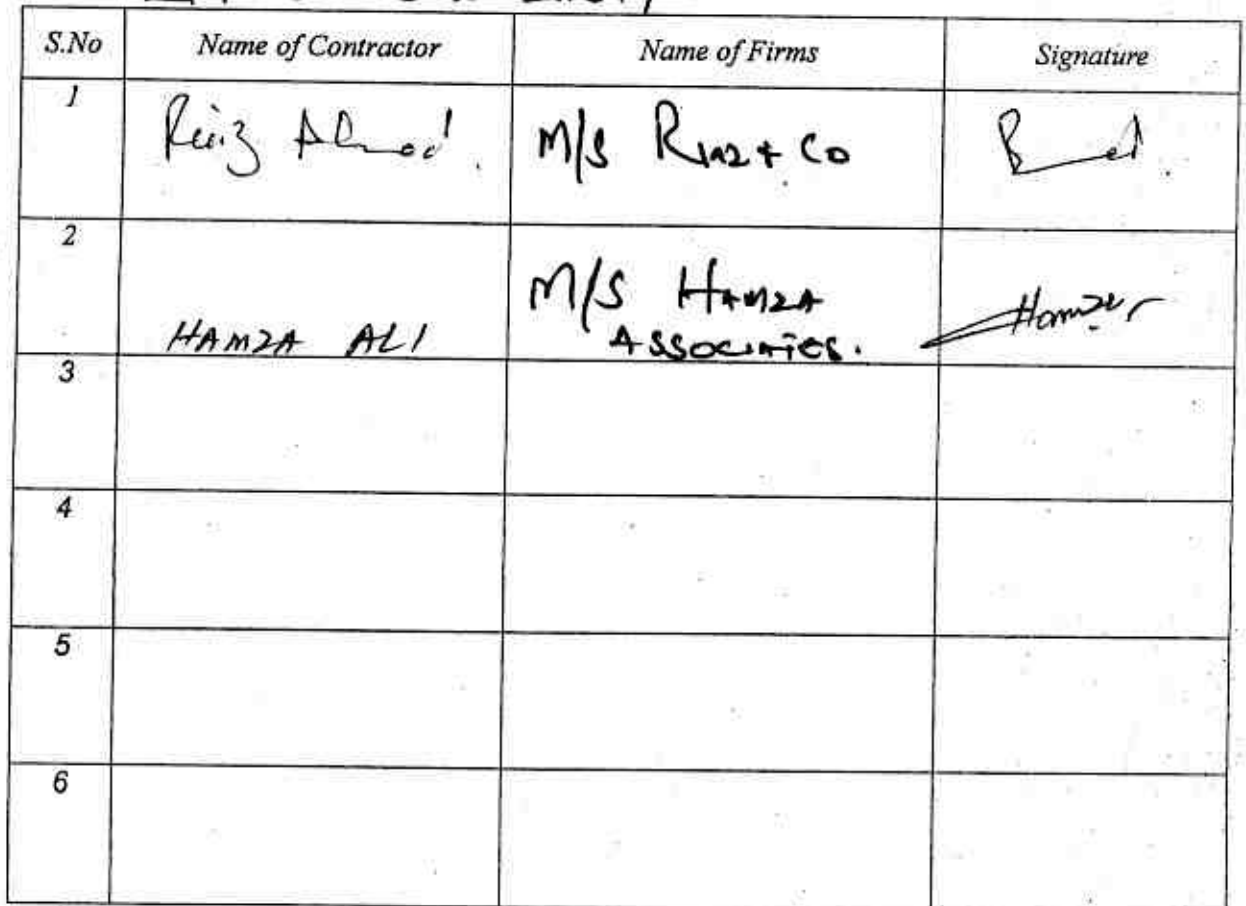 S.No Name of Contractor Name of Firms Signature
1 Riaz Ahmad. M/S Riaz + Co
2 HAMZA ALI M/S HAMZA ASSOCIATES. Hamza
3
4
5
6